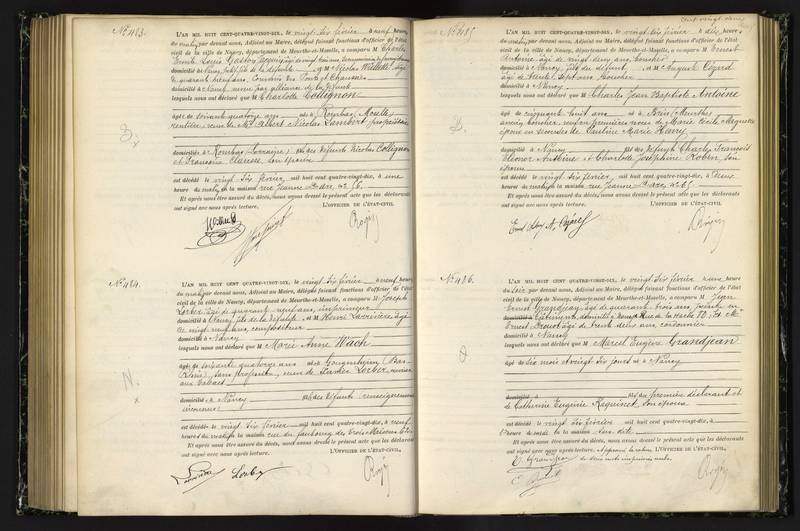 N° 483.
L'AN MIL HUIT CENT QUATRE-VINGT-DIX, le vingt six février à neuf heures
du matin par devant nous, Adjoint au Maire, délégué faisant fonctions d'officier de l'état
civil de la ville de Nancy, département de Meurthe-et-Moselle, a comparu M Charles
Emile Louis Gaston
domicilié à Nancy, petit fils de la défunte et M Nicolas Willette âgé
de quarante ans, Conducteur des Ponts et Chaussées
domicilié à Nancy, neveu par alliance de la défunte
lesquels nous ont déclaré que M Charlotte Collignon
âgée de soixante quatorze ans née à Rombas, Moselle,
rentière, veuve de M Albert Nicolas Lambert propriétaire
domiciliée à Rombas (Lorraine) fille des défunts Nicolas Collignon
et Françoise Clausse, son épouse
est décédée le vingt six février, mil huit cent quatre-vingt-dix, à une
heure du matin en la maison rue Jeanne Darc, n° 56.
Et après nous être assuré du décès, nous avons dressé le présent acte que les déclarants
ont signé avec nous après lecture. L'OFFICIER DE L'ÉTAT-CIVIL
N° 484.
L'AN MIL HUIT CENT QUATRE-VINGT-DIX, le vingt six février à neuf heures
du matin par devant nous, Adjoint au Maire, délégué faisant fonctions d'officier de l'état
civil de la ville de Nancy, département de Meurthe-et-Moselle, a comparu M Joseph
Lorber, âgé de quarante neuf ans, imprimeur
domicilié à Nancy, fils de la défunte, et M Henri Larivière âgé
de vingt neuf ans, compositeur
domicilié à Nancy
lesquels nous ont déclaré que M Marie Anne Wach
âgée de soixante quatorze ans née à Gougenheim (Bas-
Rhin), sans profession, veuve de Lorber, ouvrier
aux tabacs
domiciliée à Nancy fille des défunts renseignements
inconnus
est décédée le vingt six février mil huit cent quatre-vingt-dix, à neuf
heures du matin en la maison rue du faubourg des trois Maisons
Et après nous être assuré du décès, nous avons dressé le présent acte que les déclarants
ont signé avec nous après lecture. L'OFFICIER DE L'ÉTAT-CIVIL,
Larivière Lorber
cent vingt deux
N° 485
L'AN MIL HUIT CENT QUATRE-VINGT-DIX, le vingt six février à dix heures
du matin par devant nous, Adjoint au Maire, délégué faisant fonctions d'officier de l'état
civil de la ville de Nancy, département de Meurthe-et-Moselle, a comparu M Ernest
Antoine âgé de vingt deux ans, boucher
domicilié à Nancy, fils du défunt, et M August Cézard
âgé de trente sept ans boucher
domicilié à Nancy
lesquels nous ont déclaré que M Charles Jean Baptiste Antoine
âgé de cinquante huit ans né à Brin (Meurthe)
ancien boucher, veuf en premières noces de Marie Cécile Maguette
époux en secondes de Pauline Marie Henry
domicilié à Nancy fils des défunts Charles François
Eléonor Antoine et Charlotte Joséphine Robin, son
épouse
est décédé le vingt six février, mil huit cent quatre-vingt-dix, à deux
heures du matin en la maison, rue Jeanne Darc, n° 65.
Et après nous être assuré du décès, nous avons dressé le présent acte que les déclarants
ont signé avec nous après lecture. L'OFFICIER DE L'ÉTAT-CIVIL
N° 486.
L'AN MIL HUIT CENT QUATRE-VINGT-DIX, le vingt six février à une heure
du soir par devant nous, Adjoint au Maire, délégué faisant fonctions d'officier de l'état
civil de la ville de Nancy, département de Meurthe-et-Moselle, a comparu M Jean
Ernest Grandjean, âgé de quarante trois ans, peintre en
bâtiments, domicilié à Nancy Rue de la
Ernest Drouot âgé de trente deux ans cordonnier
domicilié à Nancy
lesquels nous ont déclaré que M Marcel Eugène Grandjean
âgé de six mois et vingt six jours né à Nancy
domicilié à fils du premier déclarant et
de Catherine Eugénie Raguinet, son épouse
est décédé le vingt six février mil huit cent quatre-vingt-dix, à
heure de midi en la maison sus dite
Et après nous être assuré du décès, nous avons dressé le présent acte que les déclarants
ont signé avec nous après lecture. L'OFFICIER DE L'ÉTAT-CIVIL,
de deux mots imprimés nuls.
E. Grandjean